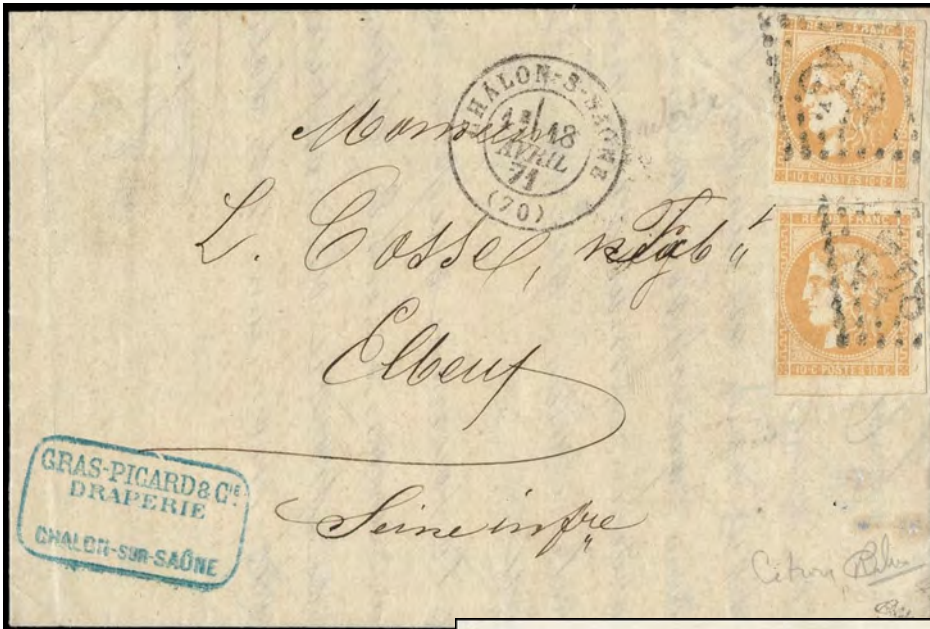 CHALON-S-SAONE
18
AVRIL
71
(70)
REPUB. FRANC.
10·C POSTES 10·C
REPUB. FRANC.
10·C POSTES 10·C
Monsieur
L. Cosse, négt
Elbeuf
Seine infre
GRAS-PICARD & CIE
DRAPERIE
CHALON-SUR-SAÔNE
Citron